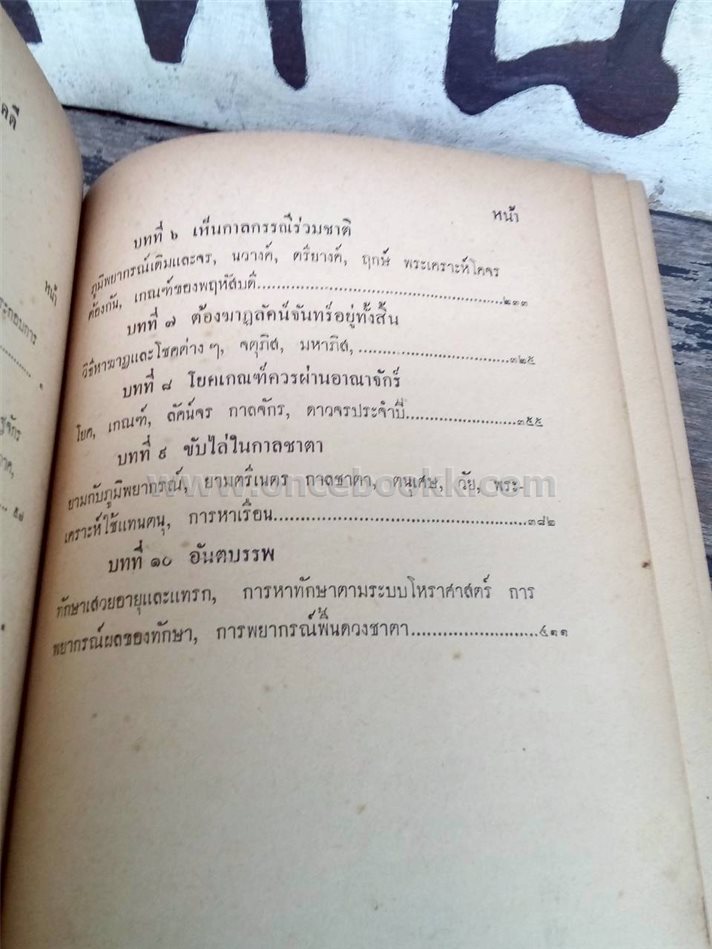 คดี
หน้า
ระกอบการ
๑
ภาค,
๕๗
หน้า
บทที่ ๖ เห็นกาลกรรณีร่วมชาติ
ภูมิพยากรณ์เดิมและจร, นวางค์, ตรียางค์, ฤกษ์ พระเคราะห์โคจร
ต้องกัน, เกณฑ์ของพฤหัสบดี................................................๒๓๓
บทที่ ๗ ต้องฆาฏลัคน์จันทร์อยู่ทั้งสิ้น
วิธีหาฆาฏและโชคต่าง ๆ, จตุภิส, มหาภิส,................................๓๒๕
บทที่ ๘ โยคเกณฑ์ควรผ่านอาณาจักร์
โยค, เกณฑ์, ลัคน์จร กาลจักร, ดาวจรประจำปี........................๓๕๕
บทที่ ๙ ขับไล่ในกาลชาตา
ยามกับภูมิพยากรณ์, ยามตรีเนตร กาลชาตา, ตนุเศษ, วัย, พระ-
www.oncebookk.com
เคราะห์ใช้แทนตนุ, การหาเรือน................................................๓๘๒
บทที่ ๑๐ อันตบรรพ
ทักษาเสวยอายุและแทรก, การหาทักษาตามระบบโหราศาสตร์ การ
พยากรณ์ผลของทักษา, การพยากรณ์พื้นดวงชาตา........................๔๑๑